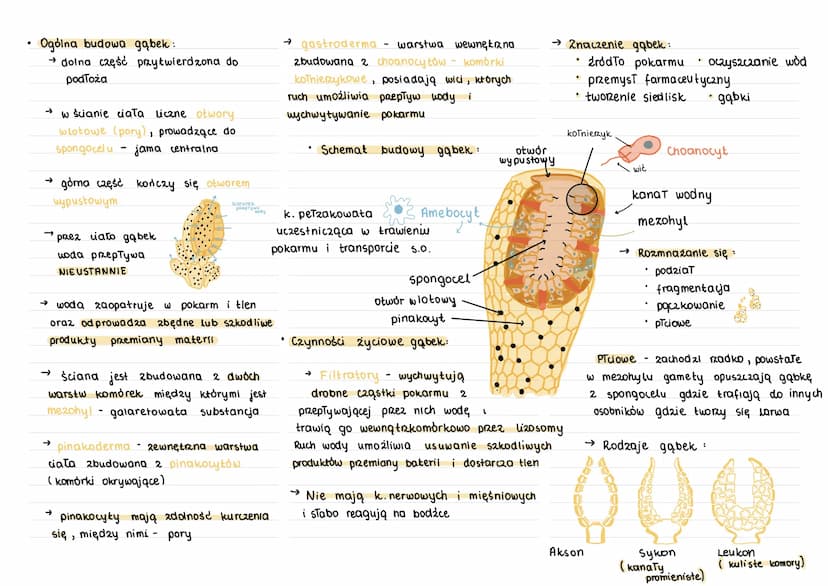 • Ogólna budowa gąbek:
→ dolna część przytwierdzona do
podłoża
→ w ścianie ciała liczne otwory
wlotowe (pory), prowadzące do
spongocelu - jama centralna
→ górna część kończy się otworem
wypustowym
→ przez ciało gąbek
woda przepływa
NIEUSTANNIE
→ woda zaopatruje w pokarm i tlen
oraz odprowadza zbędne lub szkodliwe
produkty przemiany materii
→ Ściana jest zbudowana z dwóch
warstw komórek między którymi jest
mezohyl - galaretowata substancja
→ pinakoderma - zewnętrzna warstwa
ciała zbudowana z pinakocytów
(komórki okrywające)
→ pinakocyty mają zdolność kurczenia
się, między nimi - pory
→ gastroderma - warstwa wewnętrzna
zbudowana z choanocytów - komórki
kołnierzykowe, posiadają wici, których
ruch umożliwia przepływ wody i
wychwytywanie pokarmu
• Schemat budowy gąbek:
otwór
wypustowy
kołnierzyk
Choanocyt
wić
kanał wodny
mezohyl
k. pełzakowata
Amebocyt
uczestnicząca w trawieniu
pokarmu i transporcie s.o.
spongocel
otwór wlotowy
pinakocyt
• Czynności życiowe gąbek:
→ Filtratory - wychwytują
drobne cząstki pokarmu z
przepływającej przez nich wodę i
trawią go wewnątrzkomórkowo przez lizosomy
Ruch wody umożliwia usuwanie szkodliwych
produktów przemiany baterii i dostarcza tlen
→ Nie mają k. nerwowych i mięśniowych
i słabo reagują na bodźce
→ Znaczenie gąbek:
• źródło pokarmu • oczyszczanie wód
• przemysł farmaceutyczny
• tworzenie siedlisk • gąbki
→ Rozmnażanie się:
• podział
• fragmentacja
• pączkowanie
• płciowe
Płciowe - zachodzi rzadko, powstałe
w mezohylu gamety opuszczają gąbkę
z spongocelu gdzie trafiają do innych
osobników gdzie tworzy się larwa
→ Rodzaje gąbek:
Akson
Sykon
(kanały
promieniste)
Leukon
(kuliste komory)